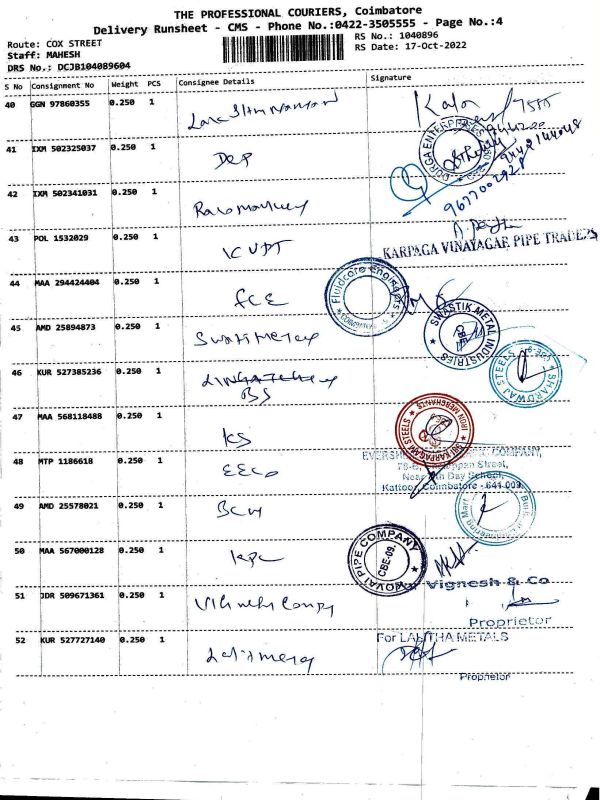 THE PROFESSIONAL COURIERS, Coimbatore
Delivery Runsheet - CMS - Phone No.:0422-3505555 - Page No.:4
Route: COX STREET
RS No.: 1040896
Staff: MAHESH
RS Date: 17-Oct-2022
DRS No.: DCJB104089604
S No Consignment No Weight PCS Consignee Details Signature
40 GGN 97860355 0.250 1
DURGA ENTERPRISES
41 IXM 502325037 0.250 1 DEP
9677002928
42 IXM 502341031 0.250 1
43 POL 1532029 0.250 1 KVPT
KARPAGA VINAYAGAR PIPE TRADERS
44 MAA 294424404 0.250 1 FCE
Fluidcore Engineers
COIMBATORE
45 AMD 25894873 0.250 1 Swasti Metals
SWASTIK METAL INDUSTRIES
46 KUR 527385236 0.250 1
BS
BHARDWAJ STEELS CBE-9
47 MAA 568118488 0.250 1 KS
SRI KARPAGAM STEELS IRON MERCHANTS
48 MTP 1186618 0.250 1 EECO
COMPANY,
Street,
Day School,
Kattoor, Coimbatore - 641 009.
49 AMD 25578021 0.250 1 BCM
50 MAA 567000128 0.250 1 KPC
KOVAI PIPE COMPANY
CBE-09.
51 JDR 509671361 0.250 1
Vignesh & Co
Proprietor
52 KUR 527727140 0.250 1
For LALITHA METALS
Proprietor